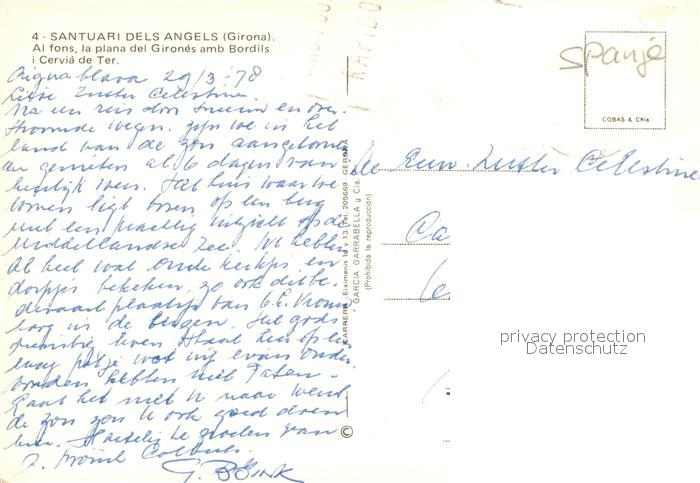 4 - SANTUARI DELS ANGELS (Girona).
Al fons, la plana del Gironés amb Bordils
i Cervià de Ter.
Aigua blava 29/3-'78
Lieve Zuster Celestine.
Na een reis door sneeuw en over-
stroomde wegen zijn we in het
land van de zon aangekomen
en genieten al 6 dagen van
heerlijk weer. Het huis waar we
wonen ligt boven op een berg
met een prachtig uitzicht op de
Middellandse Zee. We hebben
al heel wat oude kerkjes en
dorpjes bekeken, zo ook dit be-
devaart plaatsje van
in de bergen. Het gods-
dienstig leven staat hier op een
laag pitje wat wij
hebben met Pasen.
Gaat het met U naar wens,
de zon zou U ook goed doen
hier. Hartelijke groeten van
SPANJE
COBAS & Cia
RAPIDO
De Eerw. Zuster Celestine
Ca
CARRERA: Eiximenis 10 y 13. (Tel. 205669 GERONA
GARCIA GARRABELLA y Cia.
(Prohibida la reproducción)
©
privacy protection
Datenschutz